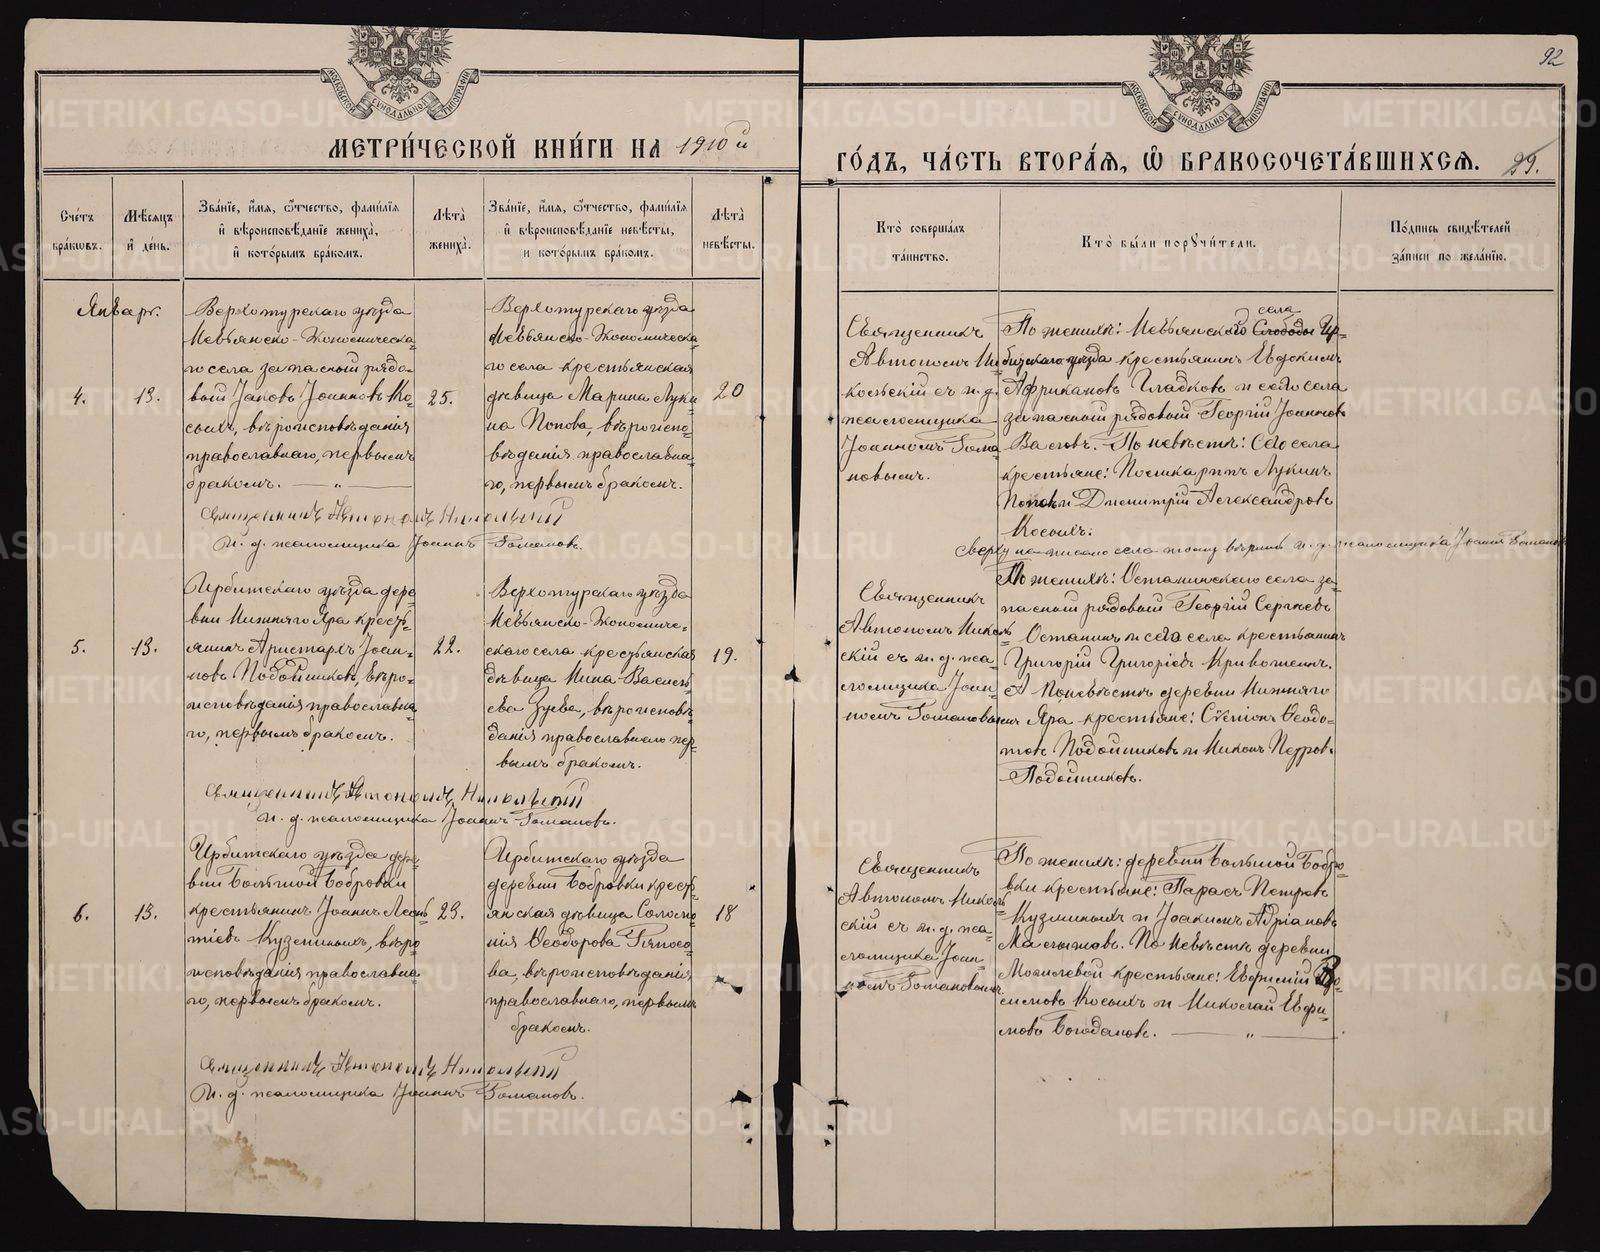 92
МОСКОВСКОЙ СѴНОДАЛЬНОЙ ТИПОГРАФІИ
МОСКОВСКОЙ СѴНОДАЛЬНОЙ ТИПОГРАФІИ
МЕТРИ́ЧЕСКОЙ КНИ́ГИ НА 1910 й
ГО́ДЪ, ЧА́СТЬ ВТОРА́Я, Ѽ БРАКОСОЧЕТА́ВШИХСЯ. 29.
Сче́тъ бра́ковъ.
Мѣ́сяцъ и҆ де́нь.
Зва́нїе, и҆́мя, ѻ҆́тчество, фами́лїя
и҆ вѣроисповѣ́данїе жениха̀,
и҆ кото́рымъ бра́комъ.
Лѣ́та̀ жениха̀.
Зва́нїе, и҆́мя, ѻ҆́тчество, фами́лїя
и҆ вѣроисповѣ́данїе невѣ́сты,
и кото́рымъ бра́комъ.
Лѣ́та̀ невѣ́сты.
Кто̀ соверша́лъ
та́инство.
Кто̀ бы́ли поручи́тели.
По́дпись свидѣ́телей
за́писи по жела́нїю.
Январь.
4.
13.
Верхотурскаго уѣзда
Невьянско-Экономическа-
го села запасный рядо-
вый Іаковъ Іоанновъ Ко-
сыхъ, вѣроисповѣданія
православнаго, первымъ
бракомъ. — „ —
25.
Верхотурскаго уѣзда
Невьянско-Экономическа-
го села крестьянская
дѣвица Марина Луки-
на Попова, вѣроиспо-
вѣданія православна-
го, первымъ бракомъ.
20
Священникъ
Автономъ Ни-
кольскій съ и. д.
псаломщика
Іоанномъ Тома-
новымъ.
села
По женихѣ: Невьянской Слободы Ир-
битскаго уѣзда крестьянинъ Евдокимъ
Африкановъ Гладковъ и сего села
запасный рядовый Георгій Іоанновъ
По невѣстѣ: Сего села
крестьяне: Поликарпъ Лукинъ
Поповъ и Димитрій Александровъ
Косыхъ.
Священникъ Автономъ Никольскій
И. д. псаломщика Іоаннъ Томановъ.
Сверху написано села тому вѣрить и. д. псаломщика Іоаннъ Томановъ
5.
13.
Ирбитскаго уѣзда дере-
вни Нижняго Яра кресть-
янинъ Аристархъ Іоан-
новъ Подойниковъ, вѣро-
исповѣданія православна-
го, первымъ бракомъ.
22.
Верхотурскаго уѣзда
Невьянско-Экономиче-
скаго села крестьянская
дѣвица Нина Василь-
ева Зуева, вѣроисповѣ-
данія православнаго пер-
вымъ бракомъ.
19.
Священникъ
Автономъ Николь-
скій съ и. д. пса-
ломщика Іоан-
номъ Томановымъ
По женихѣ: Останинскаго села за-
пасный рядовый Георгій Сергѣевъ
Останинъ и сего села крестьянинъ
Григорій Григоріевъ Кривошеинъ.
А По невѣстѣ деревни Нижняго
Яра крестьяне: Сѵмеонъ Ѳеодо-
товъ Подойниковъ и Никонъ Петровъ
Подойниковъ.
Священникъ Автономъ Никольскій
И. д. псаломщика Іоаннъ Томановъ.
6.
13.
Ирбитскаго уѣзда дере-
вни Большой Бобровки
крестьянинъ Іоаннъ Леонъ-
тіевъ Кузьминыхъ, вѣро-
исповѣданія православна-
го, первымъ бракомъ.
23.
Ирбитскаго уѣзда
деревни Бобровки кресть-
янская дѣвица Соломо-
нія Ѳеодорова
вѣроисповѣданія
православнаго, первымъ
бракомъ.
18
Священникъ
Автономъ Николь-
скій съ и. д. пса-
ломщика Іоан-
номъ Томановымъ.
По женихѣ: деревни Большой Бобро-
вки крестьяне: Тарасъ Петровъ
Кузминыхъ и Іоакимъ Адріановъ
По невѣстѣ деревни
Могилевой крестьяне: Евфимій
Косыхъ и Николай Евфи-
мовъ Богдановъ. — „ —
Священникъ Автономъ Никольскій
И. д. псаломщика Іоаннъ Томановъ.
METRIKI.GASO-URAL.RU